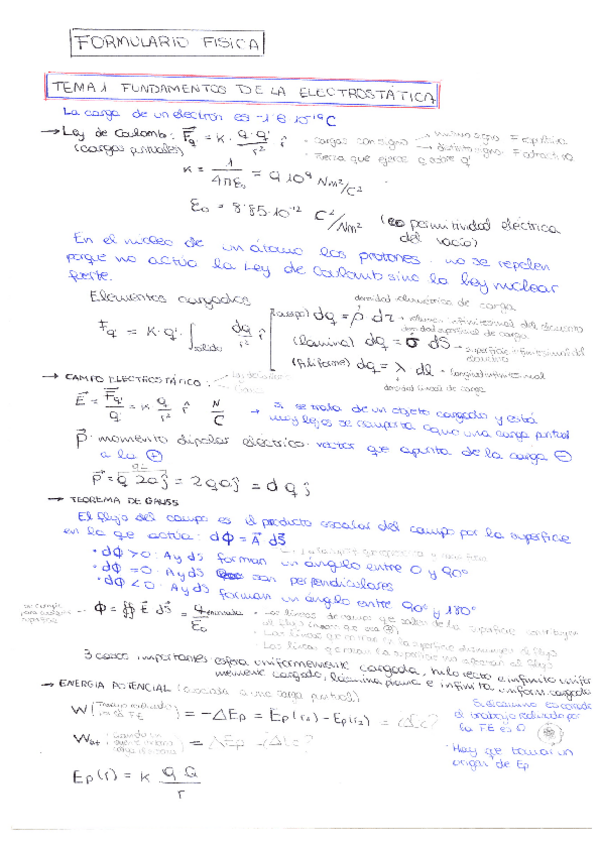 FORMULARIO FISICA
TEMA 1 FUNDAMENTOS DE LA ELECTROSTÁTICA
La carga de un electron es -1'6 10⁻¹⁹C
→ Ley de Coulomb: F⃗q' = K · q·q'/r² r̂ · cargas con signo → mismo signo = repulsiva
(cargas puntuales) → distinto signo = atractiva
· fuerza que ejerce q sobre q'
K = 1/4πε₀ = 9·10⁹ Nm²/C²
ε₀ = 8'85·10⁻¹² C²/Nm² (permitividad eléctrica
del vacío)
En el nucleo de un átomo los protones no se repelen
porque no actúa la Ley de Coulomb sino la ley nuclear
fuerte.
Elementos cargados
densidad volumétrica de carga
F⃗q' = K·q' ∫ dq/r² r̂ (cuerpo) dq = ρ dτ → volumen infinitesimal del elemento
densidad superficial de carga
(lamina) dq = σ dS → superficie infinitesimal del
(filiforme) dq = λ dl → longitud infinitesimal
densidad lineal de carga
→ CAMPO ELECTROSTÁTICO:
E⃗ = F⃗q'/q' = K q/r² r̂ N/C → si se trata de un objeto cargado y está
muy lejos se comporta como una carga puntual
p⃗ · momento dipolar electrico · vector que apunta de la carga ⊖
a la ⊕
p⃗ = q 2aĵ = 2qaĵ = d q ĵ
→ TEOREMA DE GAUSS
El flujo del campo es el producto escalar del campo por la superficie
en la que actúa: dΦ = A⃗ dS⃗
· dΦ > 0: A y dS forman un ángulo entre 0 y 90°
· dΦ = 0: A y dS son perpendiculares
· dΦ < 0: A y dS forman un ángulo entre 90° y 180°
Φ = ∯ E⃗ dS⃗ = q/ε₀ · Las lineas de campo que salen de la superficie contribuyen
· Las lineas que entran en la superficie disminuyen el flujo
3 casos importantes esfera uniformemente cargada, hilo recto e infinito unifor
memente cargado, lámina plana e infinita uniform. cargada
→ ENERGIA POTENCIAL (asociada a una carga puntual)
W (Trabajo realizado = -ΔEp = Ep(r₁) - Ep(r₂) =
Si el camino es cerrado
el trabajo realizado por
la FE es 0
= ΔEp
· Hay que tomar un
origen de Ep
Ep(r) = K q Q/r